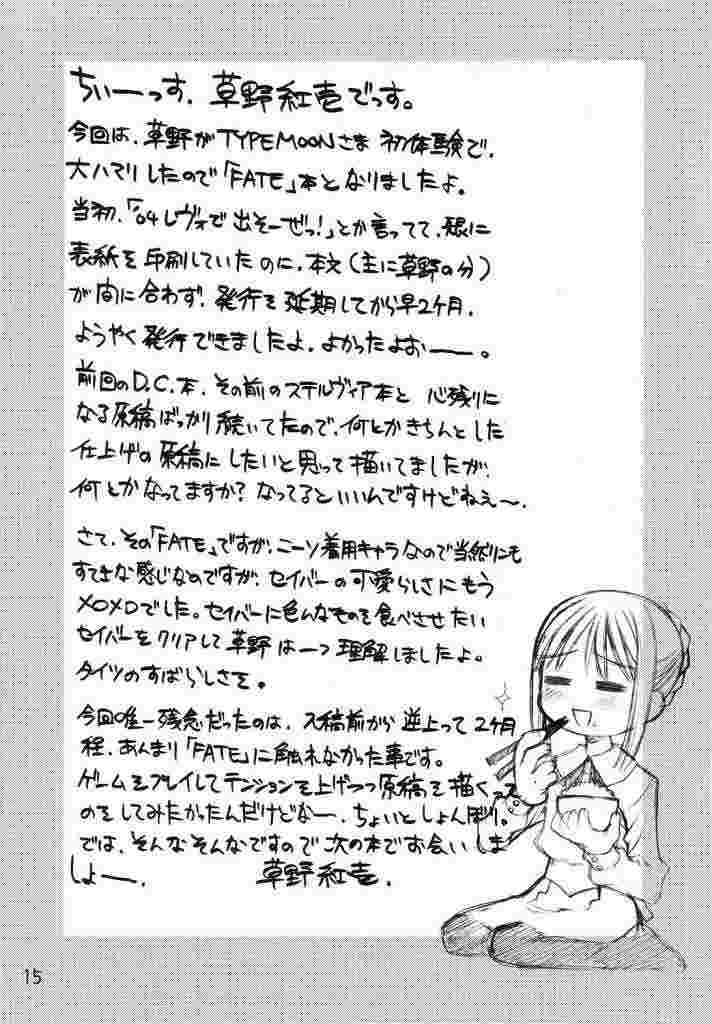 ちぃーっす、草野紅壱でっす。
今回は、草野がTYPEMOONさま 初体験で、
大ハマりしたので「FATE」本となりましたよ。
当初、「'04レヴォで出そーぜっ!」とか言ってて、既に
表紙を印刷していたのに、本文(主に草野の分)
が間に合わず、発行を延期してから早2ケ月、
ようやく発行できましたよ、よかったよおーー。
前回のD.C.本、その前のステルヴィア本と 心残りに
なる原稿ばっかり続いてたので、何とかきちんとした
仕上げの原稿にしたいと思って描いてましたが、
何とかなってますか?なってるといいんですけどねえ〜、
さて、その「FATE」ですが、ニーソ着用キャラなので当然にも
すてきな感じなのですが、セイバーの可愛らしさにもう
XOXOでした。セイバーに色んなものを食べさせたい
セイバーをクリアして草野は一つ理解しましたよ。
タイツのすばらしさを。
今回唯一残念だったのは、入稿前から逆上って2ケ月
程、あんまり「FATE」に触れなかった事です。
ゲームをプレイしてテンションを上げつつ原稿を描くって
のをしてみたかったんだけどなー、ちょいとしょんぼり。
では、そんなそんなですので次の本でお会いしま
しょー、 草野紅壱、
15